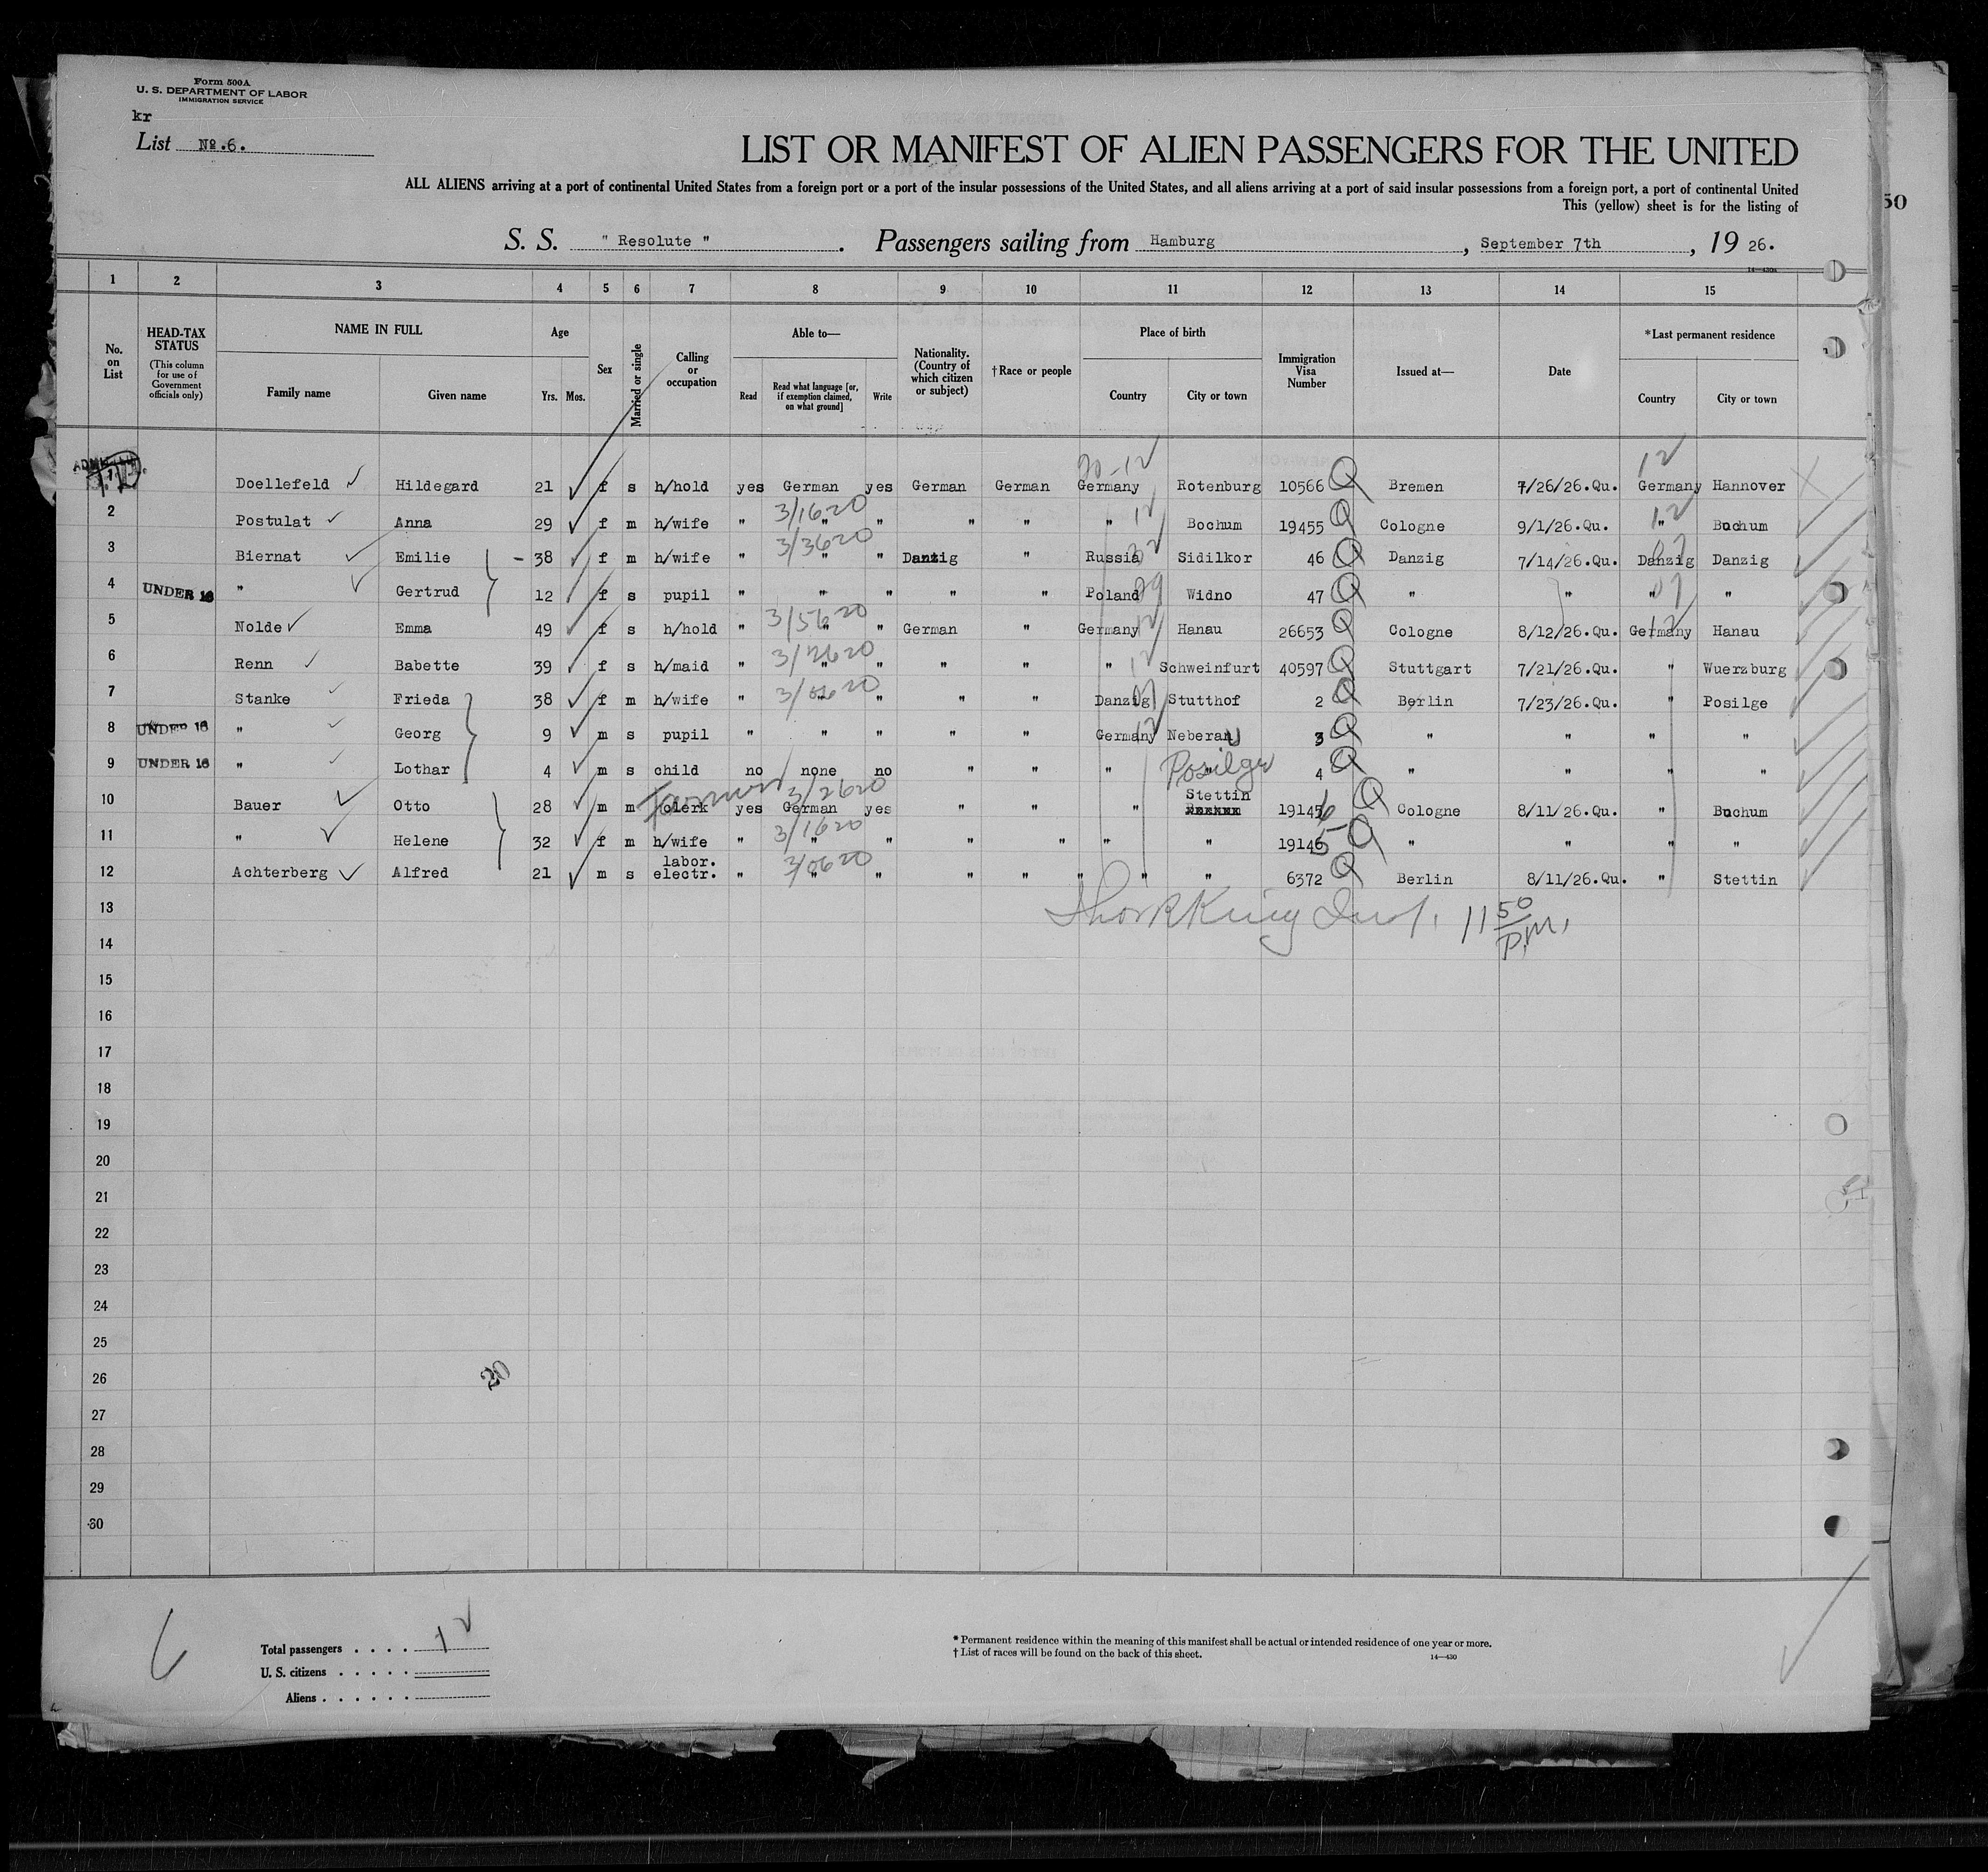 Form 500A
U. S. DEPARTMENT OF LABOR
IMMIGRATION SERVICE
kr
List No.6.
LIST OR MANIFEST OF ALIEN PASSENGERS FOR THE UNITED
ALL ALIENS arriving at a port of continental United States from a foreign port or a port of the insular possessions of the United States, and all aliens arriving at a port of said insular possessions from a foreign port, a port of continental United
This (yellow) sheet is for the listing of
50
S. S. " Resolute " . Passengers sailing from Hamburg , September 7th , 19 26.
14—430a
1 2 3 4 5 6 7 8 9 10 11 12 13 14 15
No. on List
HEAD-TAX STATUS (This column for use of Government officials only)
NAME IN FULL Family name Given name
Age Yrs. Mos.
Sex
Married or single
Calling or occupation
Able to— Read Read what language [or, if exemption claimed, on what ground] Write
Nationality. (Country of which citizen or subject)
†Race or people
Place of birth Country City or town
Immigration Visa Number
Issued at—
Date
*Last permanent residence Country City or town
20-12 12
Doellefeld Hildegard 21 f s h/hold yes German yes German German Germany Rotenburg 10566 Q Bremen 7/26/26.Qu. Germany Hannover
3/1620 12 12
2 Postulat Anna 29 f m h/wife " " " " " " Bochum 19455 Q Cologne 9/1/26.Qu. " Bochum
3/3620
3 Biernat Emilie 38 f m h/wife " " " Danzig " Russia Sidilkor 46 Q Danzig 7/14/26.Qu. Danzig Danzig
4 UNDER 16 " Gertrud 12 f s pupil " " " " " Poland Widno 47 Q " " " "
3/5620
5 Nolde Emma 49 f s h/hold " " " German " Germany Hanau 26653 Q Cologne 8/12/26.Qu. Germany Hanau
6 Renn Babette 39 f s h/maid " " " " " " Schweinfurt 40597 Q Stuttgart 7/21/26.Qu. " Wuerzburg
7 Stanke Frieda 38 f m h/wife " " " " " Danzig Stutthof 2 Q Berlin 7/23/26.Qu. " Posilge
8 UNDER 16 " Georg 9 m s pupil " " " " " Germany Neberau 3 Q " " " "
9 UNDER 16 " Lothar 4 m s child no none no " " " Posilge 4 Q " " " "
3/2620
Stettin
10 Bauer Otto 28 m m clerk yes German yes " " " 19146 Q Cologne 8/11/26.Qu. " Bochum
3/1620
11 " Helene 32 f m h/wife " " " " " " " 19145 Q " " " "
labor.
12 Achterberg Alfred 21 m s electr. " " " " " " " 6372 Q Berlin 8/11/26.Qu. " Stettin
13 11 50 P.M.
14
15
16
17
18
19
20
21
22
23
24
25
26
20
27
28
29
30
Total passengers . . . . 12
U. S. citizens . . . . .
Aliens . . . . . .
* Permanent residence within the meaning of this manifest shall be actual or intended residence of one year or more.
† List of races will be found on the back of this sheet.
14—430